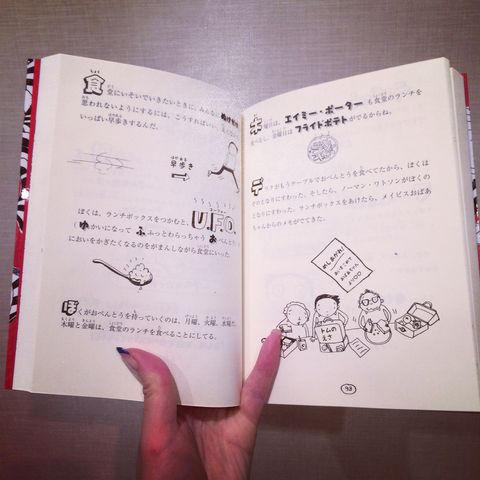 食堂にいそいでいきたいときに、みんな
思われないようにするには、こうすればいい。
いっぱい早歩きするんだ。
早歩き
ぼくは、ランチボックスをつかむと、U.F.O.
(ゆかいになって ふふっとわらっちゃう おべんとう)
においをかぎたくなるのをがまんしながら食堂にいった。
ぼくがおべんとうを持っていくのは、月曜、火曜、水曜だ。
木曜と金曜は、食堂のランチを食べることにしてる。
木曜日は、エイミー・ポーターも食堂のランチを
食べるし、金曜日はフライドポテトがでるからね。
デレクがもうテーブルでおべんとうを食べてたから、ぼくは
そのとなりにすわった。そしたら、ノーマン・ワトソンがぼくの
となりにすわった。ランチボックスをあけたら、メイビスおばあ
ちゃんからのメモがでてきた。
めしあがれ!
トムの
えさ
93